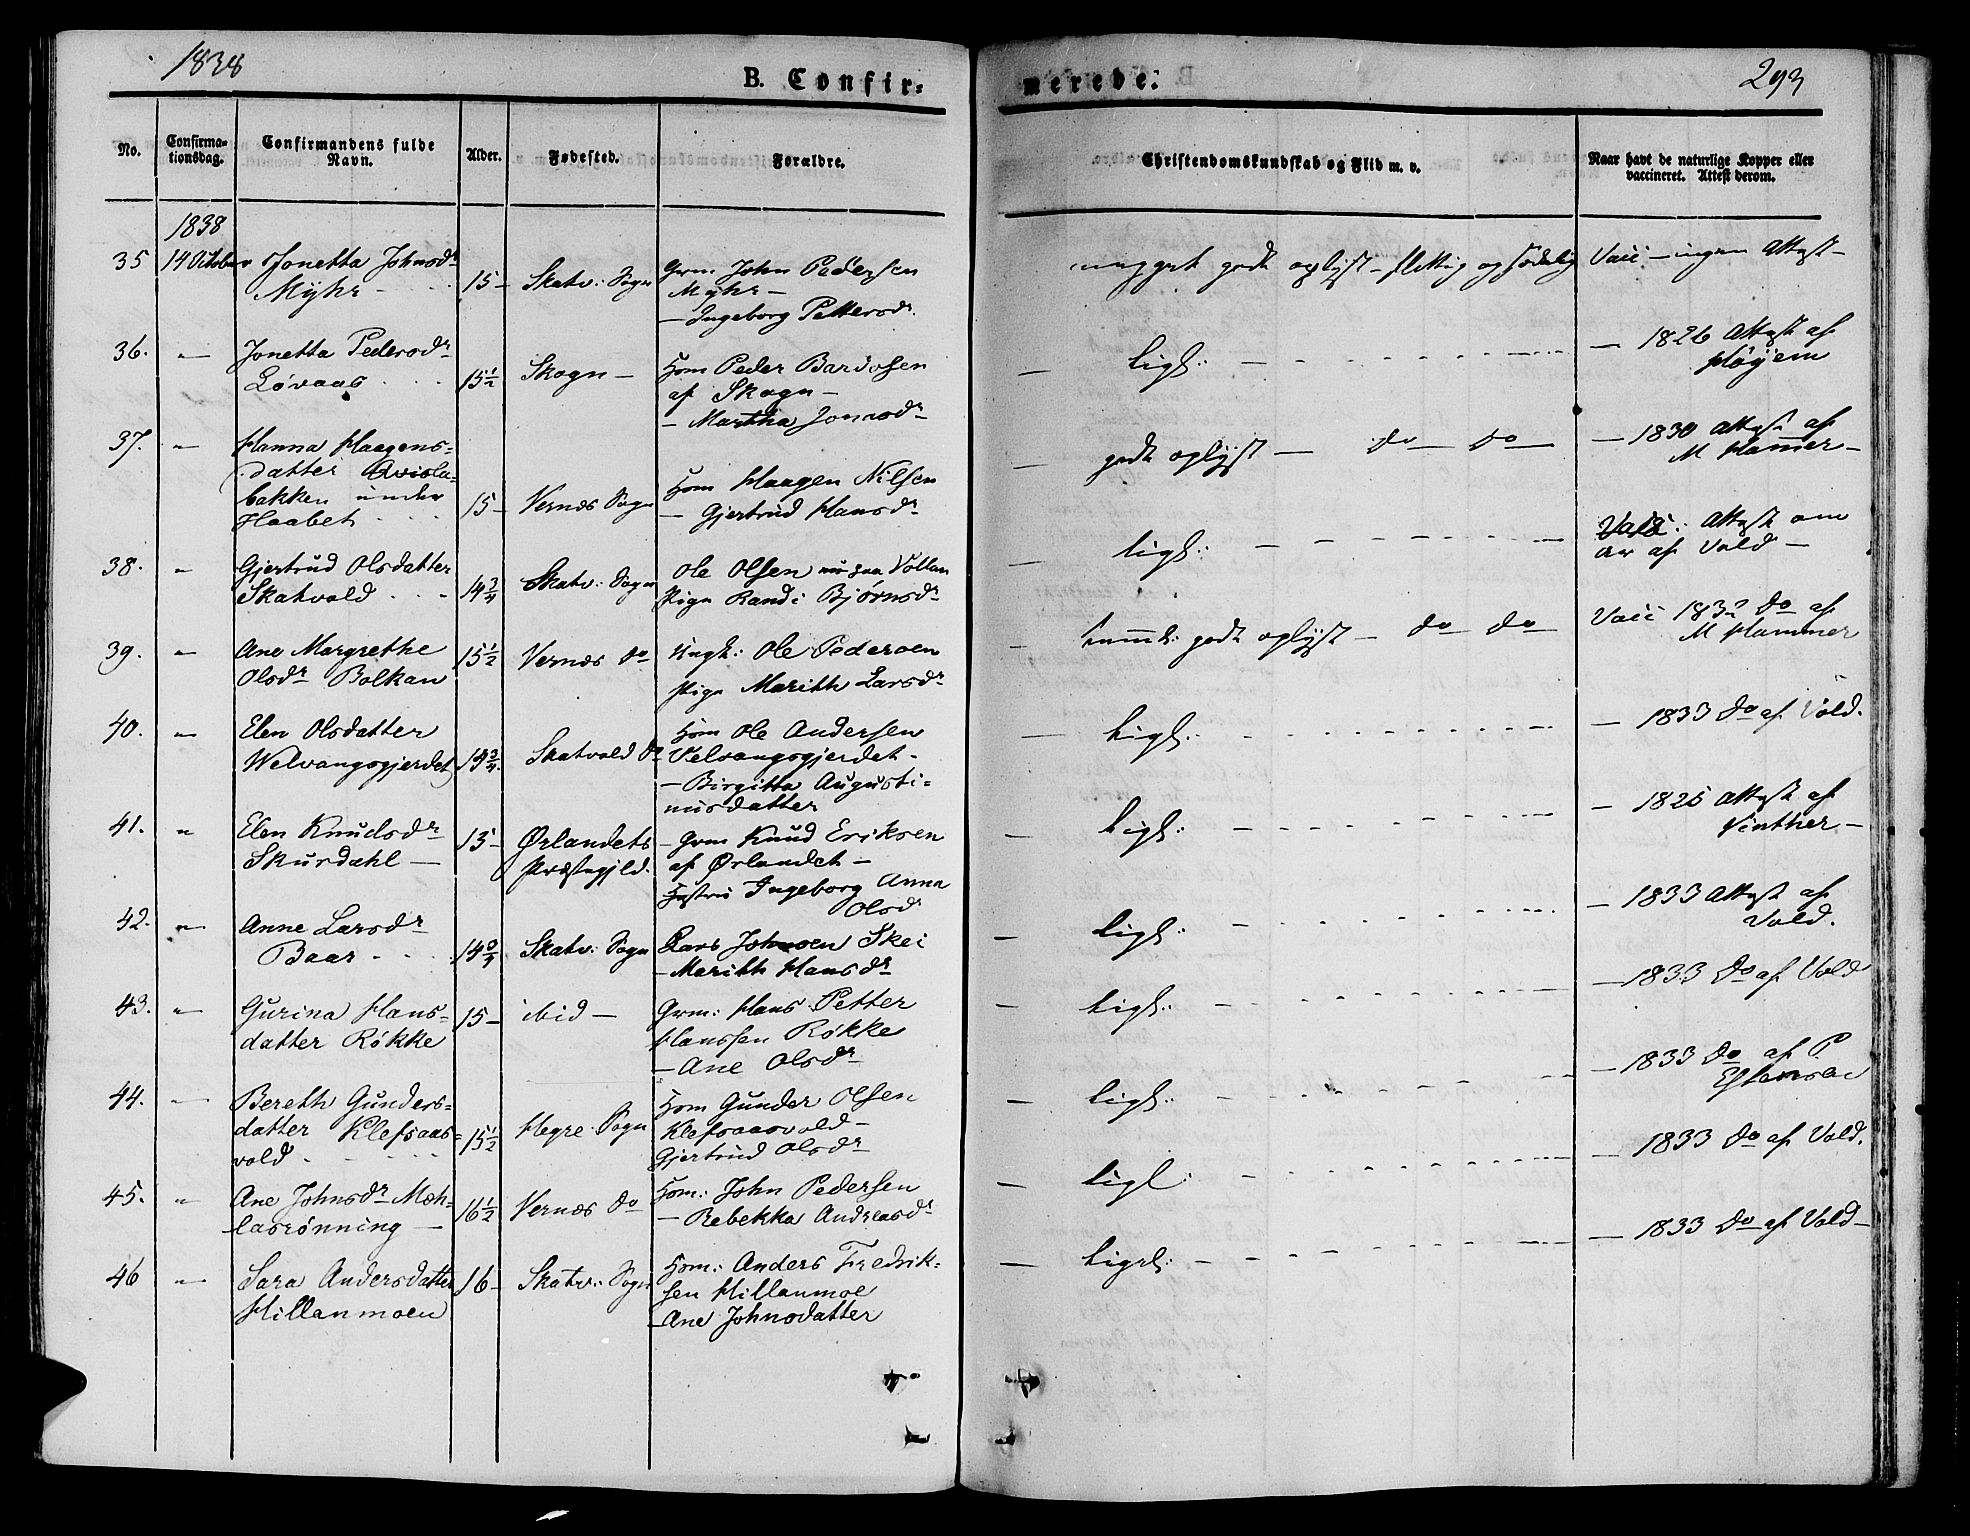 1838
B. Confir-
merede.
293
No.
Confirma-
tionsdag.
Confirmandens fulde
Navn.
Alder.
Fødested.
Forældre.
Christendomskundskab og Flid m. v.
Naar havt de naturlige Kopper eller
vaccineret. Attest derom.
1838
35 14 October Jonetta Johnsdr
Myhr - - 15 - Skatv: Sogn
Grm John Pedersen
Myhr -
- Ingeborg Pettersdr
meget godt oplyst - flittig og sædelig
Vacc - ingen Attest -
36. " Jonetta Pedersdr
Løvaas - - 15½ Skogn -
Hom Peder Bardosen
af Skogn -
- Martha Jonasdr
- ligl: - - - 1826 Attest af
Høyem
37. " Hanna Haagens-
datter Qvisla-
bakken under
Haabet - - 15 - Vernæs Sogn
Hom Haagen Nilsen
- Gjertrud Hansdr
- godt oplyst - do - do - - 1830 Attest af
M Hammer -
38. " Gjertrud Olsdatter
Skatvold - - 14¾ Skatv: Sogn
Ole Olsen paa Vollan
Pige Randi Bjørnsdr
- ligl: - - - Vacc: Attest om
ar af Vold -
39. " Ane Margrethe
Olsdr Bolkan 15½ Vernæs do
Ungk: Ole Pedersen
Pige Marith Larsdr
- temml: godt oplyst - do do - Vacc 1832 do af
M Hammer
40. " Elen Olsdatter
Welvangsgjerdet 14¾ Skatvold do
Hom Ole Andersen
Velvangsgjerdet -
- Birgitta Augusti-
nusdatter
- ligl: - - - 1833 do af Vold.
41. " Elen Knudsdr
Skurdahl - 15 - Ørlandets
Præstegjld.
- Grm Knud Eriksen
af Ørlandet -
Hustru Ingeborg Anna
Olsdr
- ligl: - - - 1825 Attest af
Vinther -
42. " Anne Larsdr
Baar - - 14¾ Skatv: Sogn
Lars Johnsen Skei
- Marith Hansdr
- ligl: - - - 1833 Attest af
Vold.
43. " Gurina Hans-
datter Røkke 15 - ibid -
Grm: Hans Petter
Hanssen Røkke
- Ane Olsdr
- ligl: - - - 1833 do af Vold
44. - Bereth Gunders-
datter Klefsaas-
vold - - 15½ Hegre Sogn
Hom Gunder Olsen
Klefsaasvold -
Gjertrud Olsdr
- ligl: - - - 1833 do af P
Estensen
45. " Ane Johnsdr Moh-
lasrønning - 16½ Vernæs do
Hom: John Pedersen
- Rebekka Andreasdr
- ligl: - - - 1833 do af Vold.
46 " Sara Andersdatter
Hillanmoen 16 - Skatv: Sogn
Hom: Anders Fredrik-
sen Hillanmoe
- Ane Johnsdatter
- ligel: - - - 1833 do af Vold -